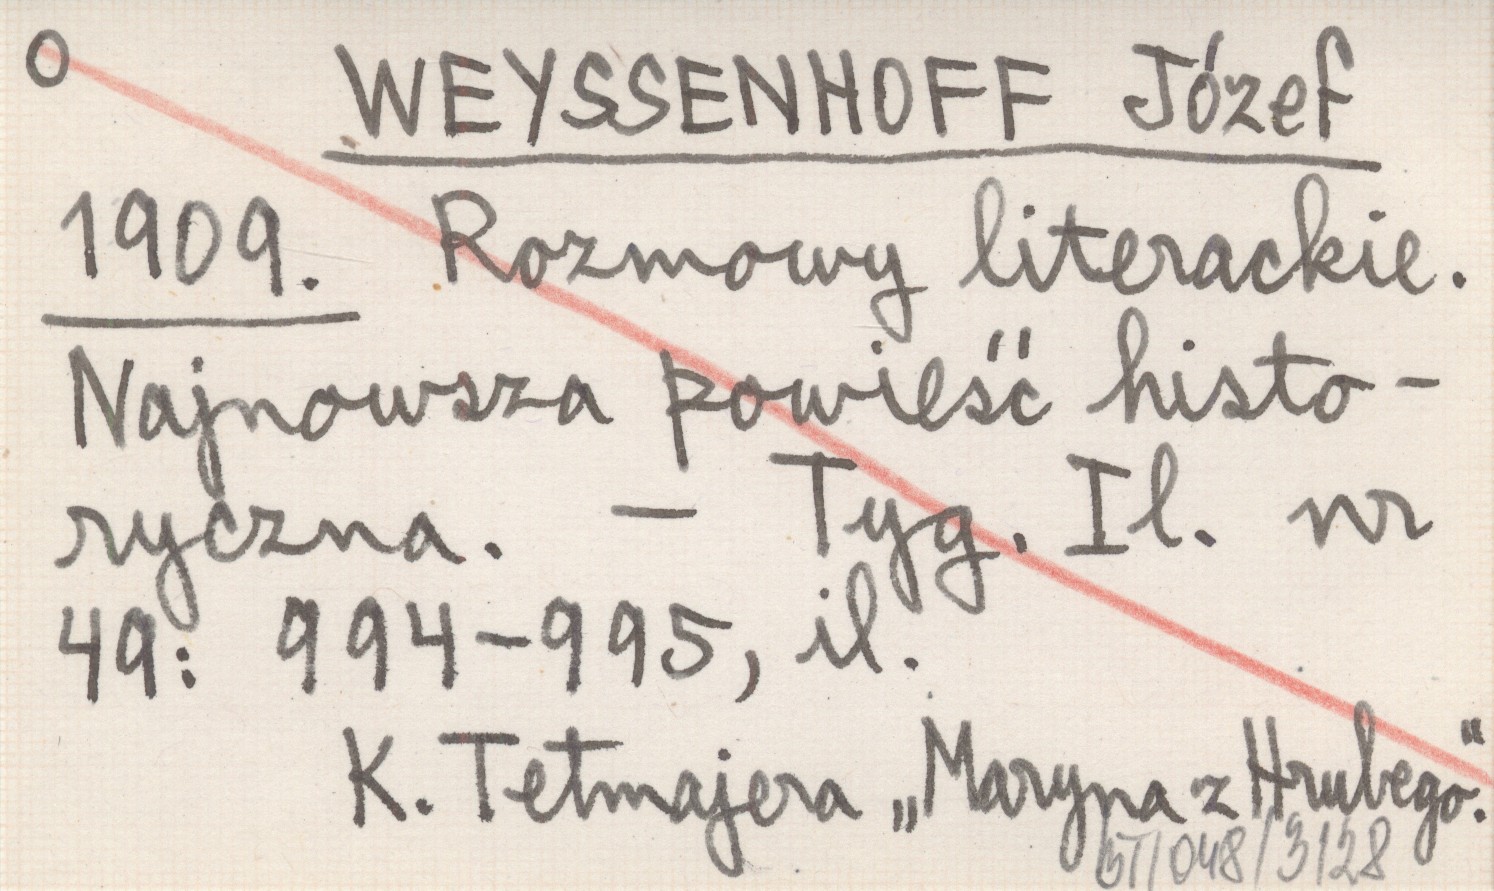 O
WEYSSENHOFF Józef
1909. Rozmowy literackie.
Najnowsza powieść histo-
ryczna. — Tyg. Il. nr
49: 994-995, il.
K. Tetmajera „Maryna z Hrubego".
/048/3128